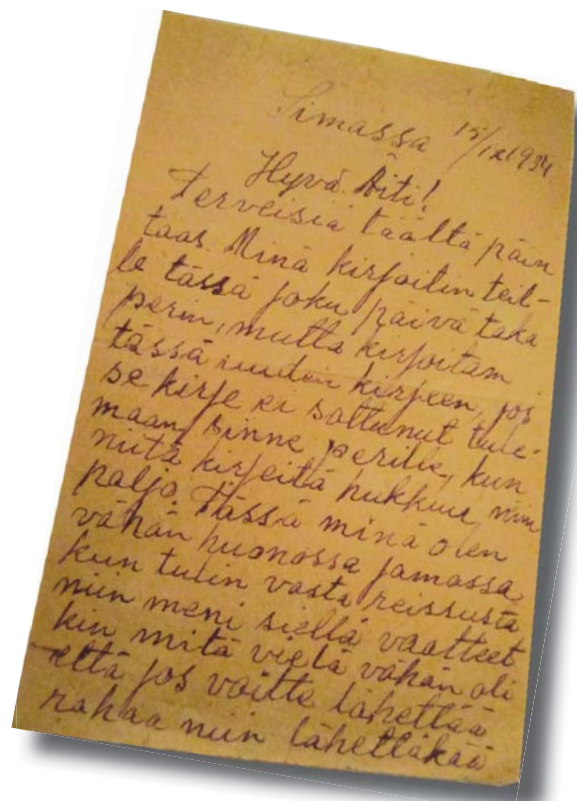 Simassa 15/12 1934
Hyvä Äiti!
Terveisiä täältä päin
taas. Minä kirjoitin teil-
le tässä joku päivä taka
perin, mutta kirjoitam
tässä uuden kirjeen, jos
se kirje ei sattunut tule-
maan sinne perille, kun
niitä kirjeitä hukkuu niin
paljo. Tässä minä olen
vähän huonossa jamassa,
kun tulin vasta reissusta
niin meni siellä vaatteet
kin mitä vielä vähän oli
että jos voitte lähettää
rahaa niin lähettäkää